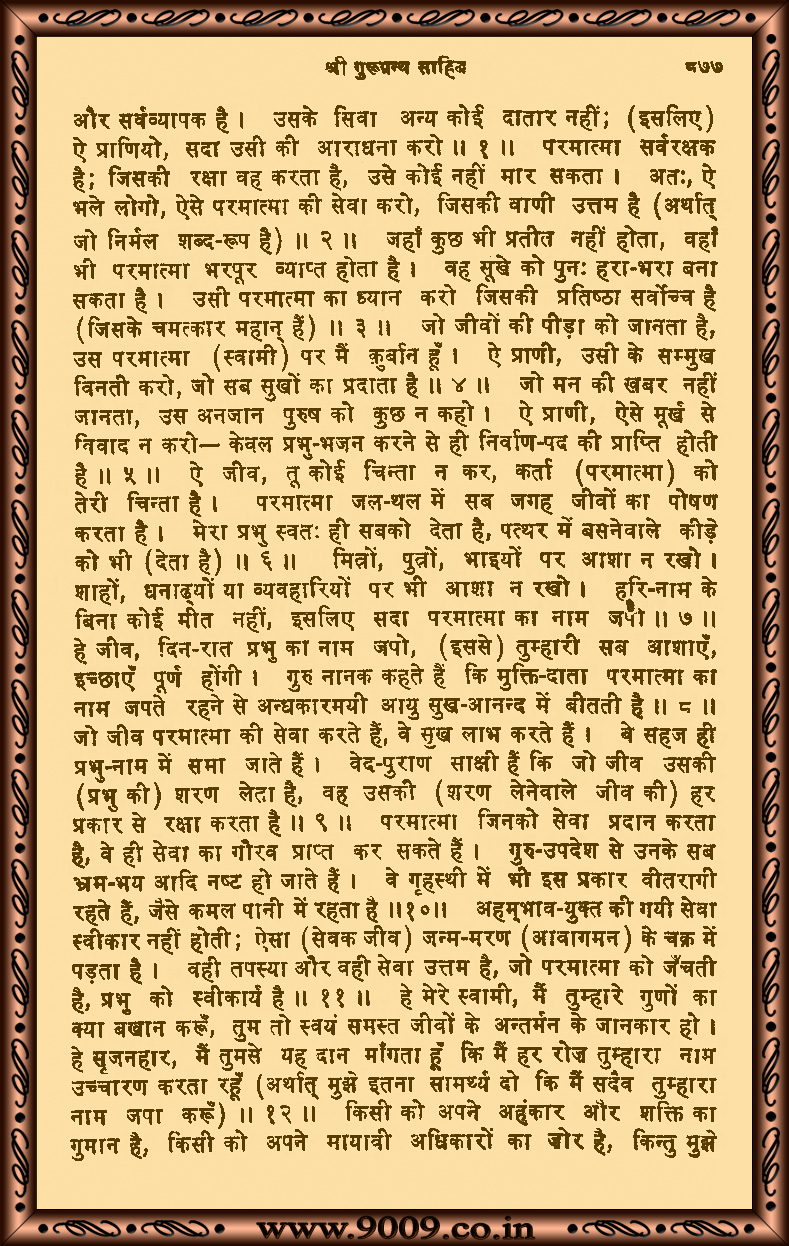 श्री गुरूग्रन्थ साहिब ८७७
और सर्वव्यापक है । उसके सिवा अन्य कोई दातार नहीं; (इसलिए)
ऐ प्राणियो, सदा उसी की आराधना करो ॥ १ ॥ परमात्मा सर्वरक्षक
है; जिसकी रक्षा वह करता है, उसे कोई नहीं मार सकता । अतः, ऐ
भले लोगो, ऐसे परमात्मा की सेवा करो, जिसकी वाणी उत्तम है (अर्थात्
जो निर्मल शब्द-रूप है) ॥ २ ॥ जहाँ कुछ भी प्रतीत नहीं होता, वहाँ
भी परमात्मा भरपूर व्याप्त होता है । वह सूखे को पुनः हरा-भरा बना
सकता है । उसी परमात्मा का ध्यान करो जिसकी प्रतिष्ठा सर्वोच्च है
(जिसके चमत्कार महान् हैं) ॥ ३ ॥ जो जीवों की पीड़ा को जानता है,
उस परमात्मा (स्वामी) पर मैं क़ुर्बान हूँ । ऐ प्राणी, उसी के सम्मुख
विनती करो, जो सब सुखों का प्रदाता है ॥ ४ ॥ जो मन की ख़बर नहीं
जानता, उस अनजान पुरुष को कुछ न कहो । ऐ प्राणी, ऐसे मूर्ख से
विवाद न करो— केवल प्रभु-भजन करने से ही निर्वाण-पद की प्राप्ति होती
है ॥ ५ ॥ ऐ जीव, तू कोई चिन्ता न कर, कर्ता (परमात्मा) को
तेरी चिन्ता है । परमात्मा जल-थल में सब जगह जीवों का पोषण
करता है । मेरा प्रभु स्वतः ही सबको देता है, पत्थर में बसनेवाले कीड़े
को भी (देता है) ॥ ६ ॥ मित्रों, पुत्रों, भाइयों पर आशा न रखो ।
शाहों, धनाढ्यों या व्यवहारियों पर भी आशा न रखो । हरि-नाम के
बिना कोई मीत नहीं, इसलिए सदा परमात्मा का नाम जपो ॥ ७ ॥
हे जीव, दिन-रात प्रभु का नाम जपो, (इससे) तुम्हारी सब आशाएँ,
इच्छाएँ पूर्ण होंगी । गुरु नानक कहते हैं कि मुक्ति-दाता परमात्मा का
नाम जपते रहने से अन्धकारमयी आयु सुख-आनन्द में बीतती है ॥ ८ ॥
जो जीव परमात्मा की सेवा करते हैं, वे सुख लाभ करते हैं । बे सहज ही
प्रभु-नाम में समा जाते हैं । वेद-पुराण साक्षी हैं कि जो जीव उसकी
(प्रभु की) शरण लेता है, वह उसकी (शरण लेनेवाले जीव की) हर
प्रकार से रक्षा करता है ॥ ९ ॥ परमात्मा जिनको सेवा प्रदान करता
है, वे ही सेवा का गौरव प्राप्त कर सकते हैं । गुरु-उपदेश से उनके सब
भ्रम-भय आदि नष्ट हो जाते हैं । वे गृहस्थी में भी इस प्रकार वीतरागी
रहते हैं, जैसे कमल पानी में रहता है ॥१०॥ अहम्‌भाव-युक्त की गयी सेवा
स्वीकार नहीं होती; ऐसा (सेवक जीव) जन्म-मरण (आवागमन) के चक्र में
पड़ता है । वही तपस्या और वही सेवा उत्तम है, जो परमात्मा को जँचती
है, प्रभु को स्वीकार्य है ॥ ११ ॥ हे मेरे स्वामी, मैं तुम्हारे गुणों का
क्या बखान करूँ, तुम तो स्वयं समस्त जीवों के अन्तर्मन के जानकार हो ।
हे सृजनहार, मैं तुमसे यह दान माँगता हूँ कि मैं हर रोज़ तुम्हारा नाम
उच्चारण करता रहूँ (अर्थात् मुझे इतना सामर्थ्य दो कि मैं सदैव तुम्हारा
नाम जपा करूँ) ॥ १२ ॥ किसी को अपने अहंकार और शक्ति का
गुमान है, किसी को अपने मायावी अधिकारों का ज़ोर है, किन्तु मुझे
www.9009.co.in